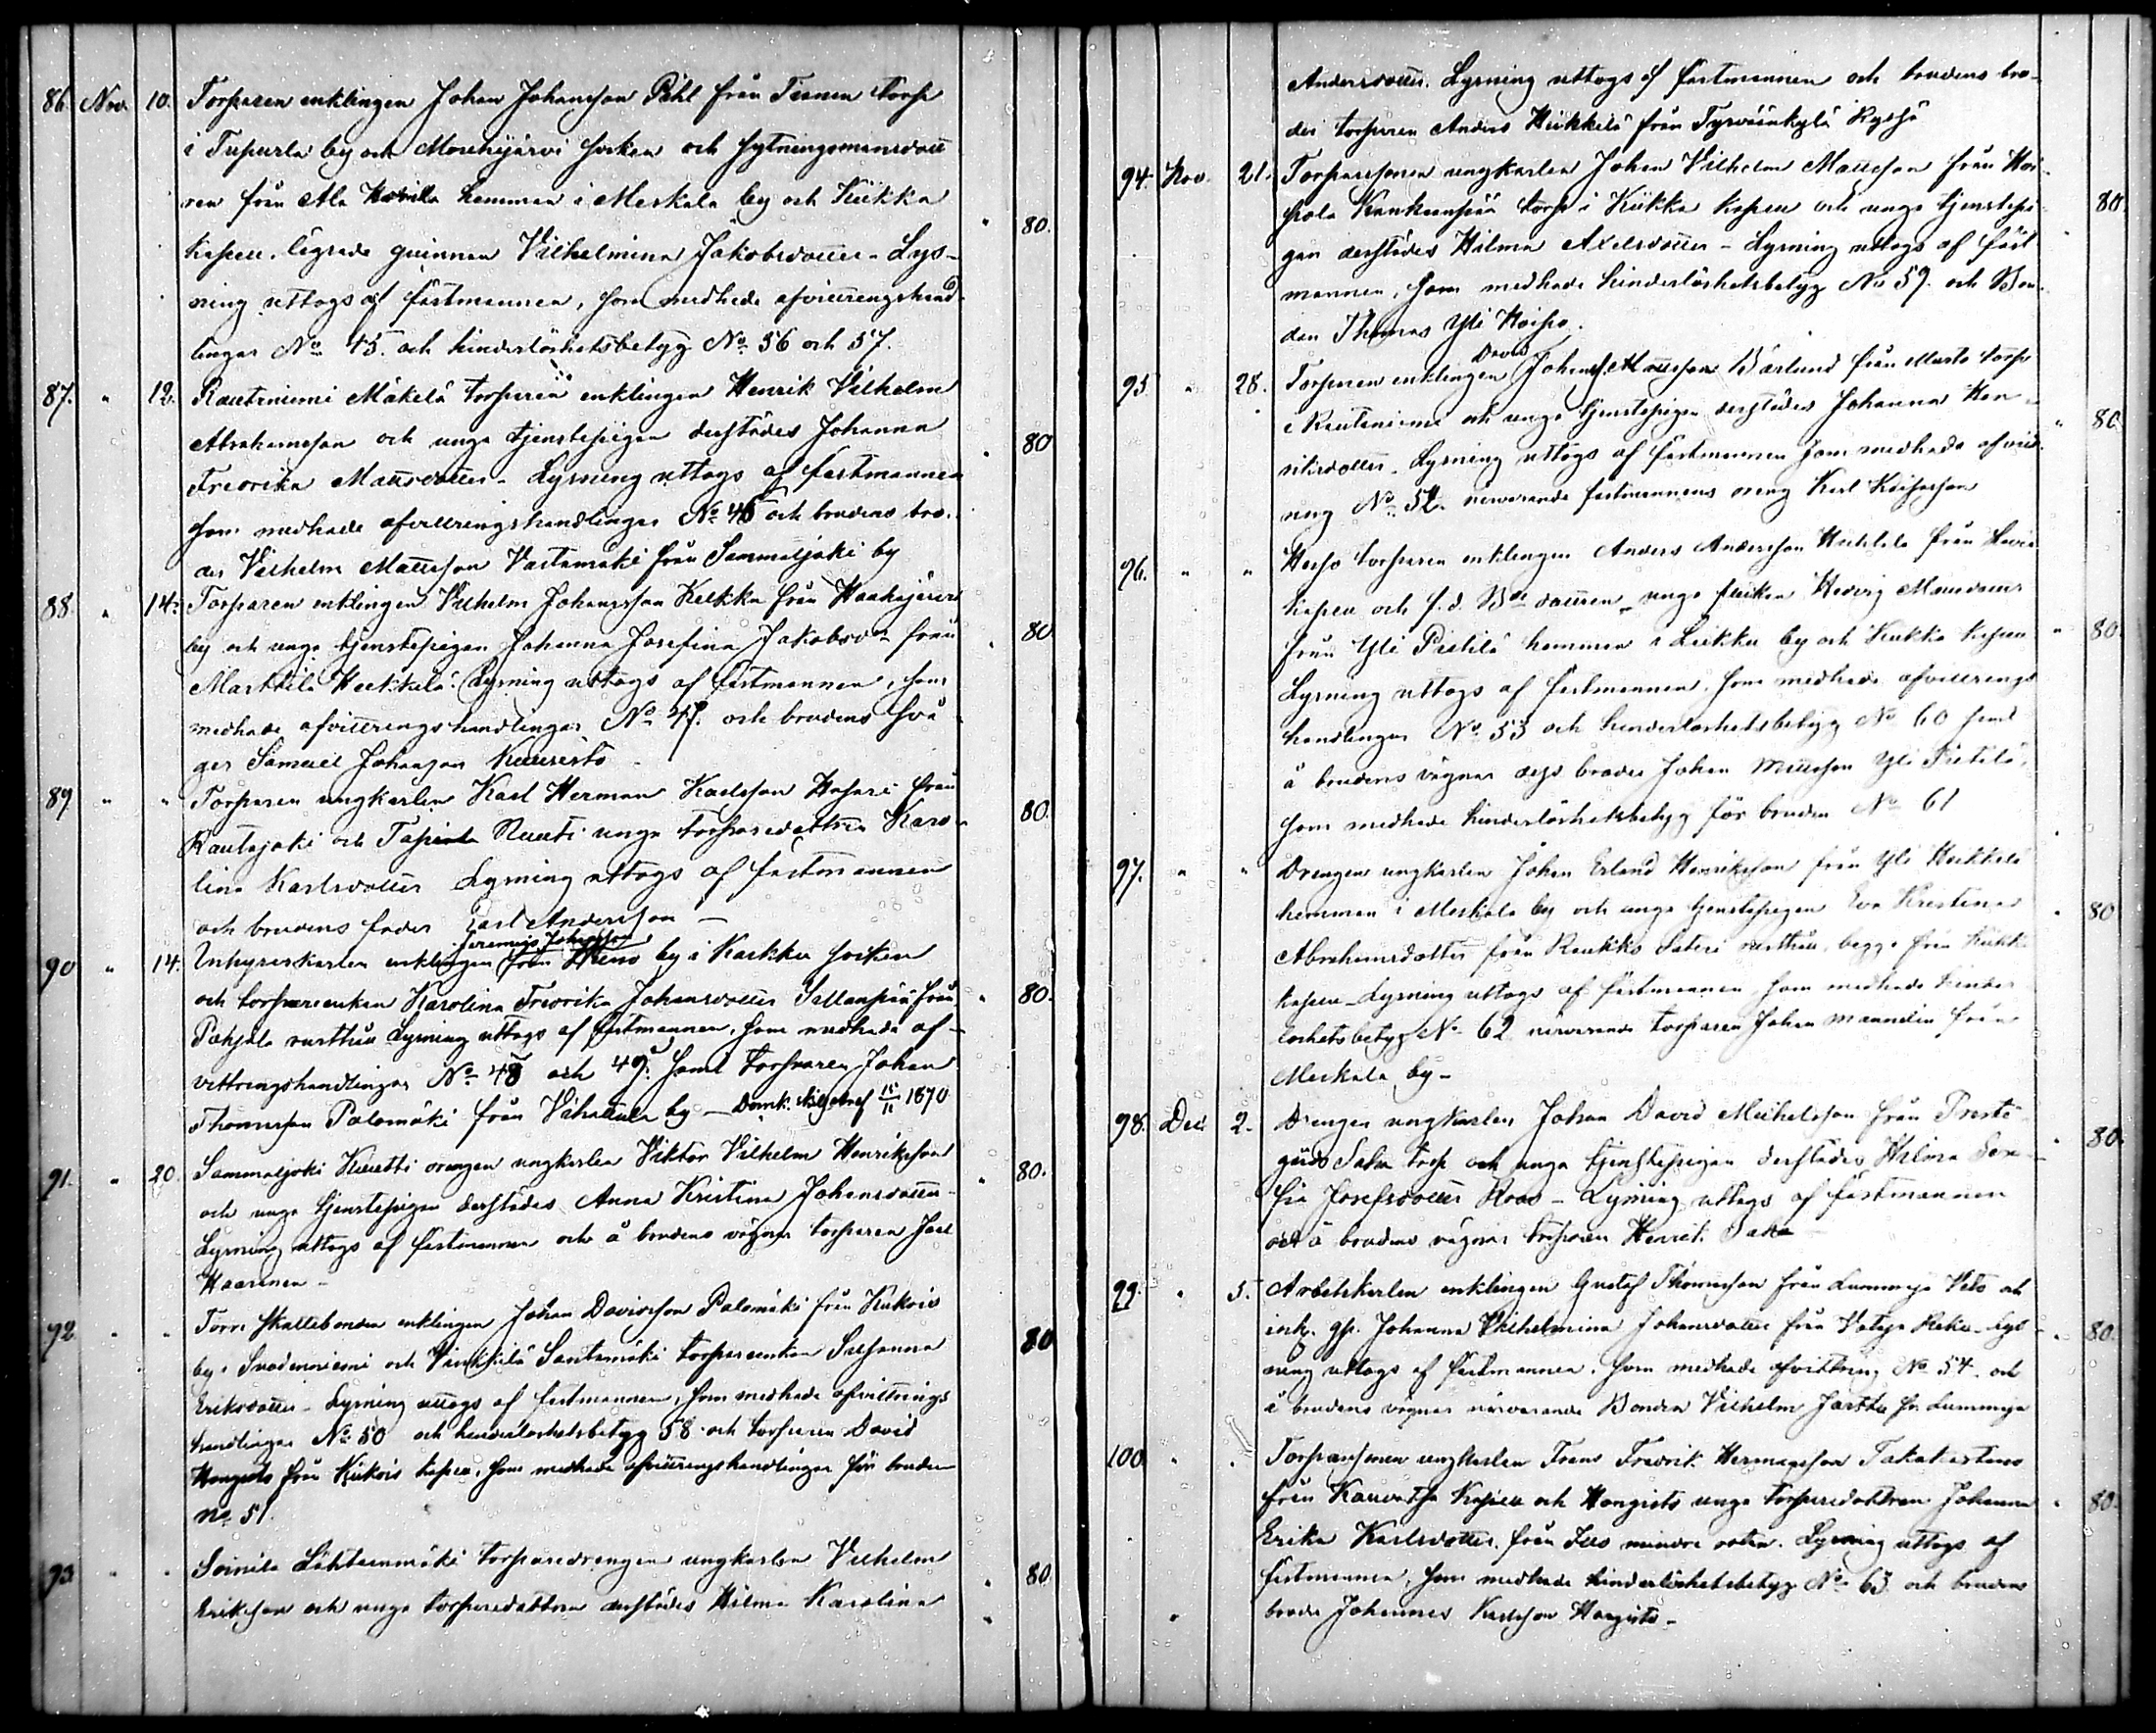 86. Nov. 10. Torparen enklingen Johan Johansson Pihl från Tienen torp
i Tupurla by och Mouhijärvi socken och sytningsmansdott
ren från Ala hemman i Meskala by och Kiikka " 80.
kapell, lägrade qvinnan Vilhelmina Jakobsdotter – Lys-
ning uttogs af fästmannen, som medhade afvittringshand-
lingar No 45. och hinderlöshetsbetyg No 56 och 57.
87. " 12. Rautaniemi Mäkelä torparen enklingen Henrik Vilhelm
Abrahamsson och unga tjenstepigan derstädes Johanna " 80
Fredrika Mattsdotter – Lysning uttogs af fästmannen
som medhade afvittringshandlingar No 46 och brudens bro-
der Vilhelm Mattsson Vastamäki från Sammaljoki by
88. " 14. Torparen enklingen Vilhelm Johansson Kulkka från Haukijärvi
by och unga tjenstepigan Johanna Josefina Jakobsdr från " 80
Marttila Heikkilä. Lysning uttogs af fästmannen, som
medhade afvittringshandlingar No 47. och brudens svå
ger Samuel Johansson
89 " " Torparen ungkarlen Karl Herman Karlsson från
Rautajoki och Ruuti unga torparedottren Karo- 80.
lina Karlsdotter Lysning uttogs af fästmannen
och brudens fader Carl Andersson –
Jeremias Johansson
90 " 14. Inhyseskarlen enklingen från by i Karkku socken
och torpareenkan Karolina Fredrika Johansdotter Sillanpää från " 80.
Pohjala rusthåll Lysning uttogs af fästmannen, som medhade af-
vittringshandlingar No 48 och 49. samt torparen Johan
Thomasson Palomäki från by – 15/11 1870
91. " 20. Sammaljoki drengen ungkarlen Viktor Vilhelm Henriksson
och unga tjenstepigan derstädes Anna Kristina Johansdotter – " 80.
Lysning uttogs af fästmannen och å brudens vägnar torparen
Haarinen –
92. " " Torp enklingen Johan Davidsson Palomäki från Kiikois
by i Suodenniemi och Santamäki torpareenkan Susanna 80
Eriksdotter – Lysning uttogs af fästmannen, som medhade afvittrings
handlingar No 50 och hinderlöshetsbetyg 58. och torparen David
Hongisto från Kiikois kapell, som medhade afvittringshandlingar för bruden
No 51.
93. " " Soinila torparedrengen ungkarlen Vilhelm
Eriksson och unga torparedottren derstädes Hilma Karolina " 80.
Andersdotter. Lysning uttogs af fästmannen och brudens bro-
der torparen Anders Heikkilä från Tyrväänkylä
94. Nov. 21. Torparesonen ungkarlen Johan Vilhelm Mattsson från
torp i Kiikka kapell och unga tjenstepi- 80.
gan derstädes Hilma Axelsdotter – Lysning uttogs af fäst
mannen, som medhade hinderlöshetsbetyg No 59. och Bon-
den Thomas Yli
David
95. " 28. Torparen enklingen Johan Mattsson Bärlund från torp
i Rautaniemi och unga tjenstepigan derstädes Johanna Hen- " 80
riksdotter. Lysning uttogs af fästmannen som medhade afvitt
ring No 52. närvarande fästmannens Karl
96. " " torparen enklingen Anders Andersson från
kapell och f.d. unga flickan Hedvig Mattsdotter
från Yli Pietilä hemman i Leikku by och Kiikka kapell " 80.
Lysning uttogs af fästmannen, som medhade afvittrings
handlingar No 53 och hinderlöshetsbetyg No 60 samt
å brudens vägnar dess broder Johan Mattsson Yli Pietilä,
som medhade hinderlöshetsbetyg för bruden No 61
97. " " Drengen ungkarlen Johan Erland Henriksson från Yli Heikkilä
hemman i Meskala by och unga tjenstepigan Eva Kristina " 80
Abrahamsdotter från Roukko Säteri rusthåll, begge från Kiikka
kapell – Lysning uttogs af fästmannen, som medhade hinder
löshetsbetyg No 62 närvarande torparen Johan från
Meskala by –
98. Dec 2. Drengen ungkarlen Johan David Michelsson från Prest-
gårds torp och unga tjenstepigan derstädes Hilma " 80.
Josefsdotter Roos – Lysning uttogs af fästmannen
och å brudens vägnar torparen Henrik
99. " 5. Arbetskarlen enklingen Gustaf Thomasson från och
inh. qp. Johanna Vilhelmina Johansdotter från Lys- " 80.
ning uttogs af fästmannen, som medhade afvittring No 54. och
å brudens vägnar närvarande Bonden Vilhelm
100 " . Torparesonen ungkarlen Frans Fredrik Hermansson
från Kauvatsa Kapell och Hongisto unga torparedottren Johanna " 80.
Erika Karlsdotter. från mindre roten. Lysning uttogs af
fästmannen, som medhade hinderlöshetsbetyg No 63 och brudens
broder Johannes Karlsson Hongisto –